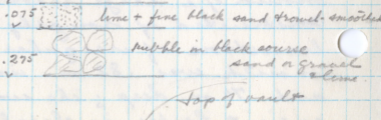 .075 lime + fine black sand trowel-smoothed
.275 rubble in black course
sand or gravel
+ lime
Top of vault